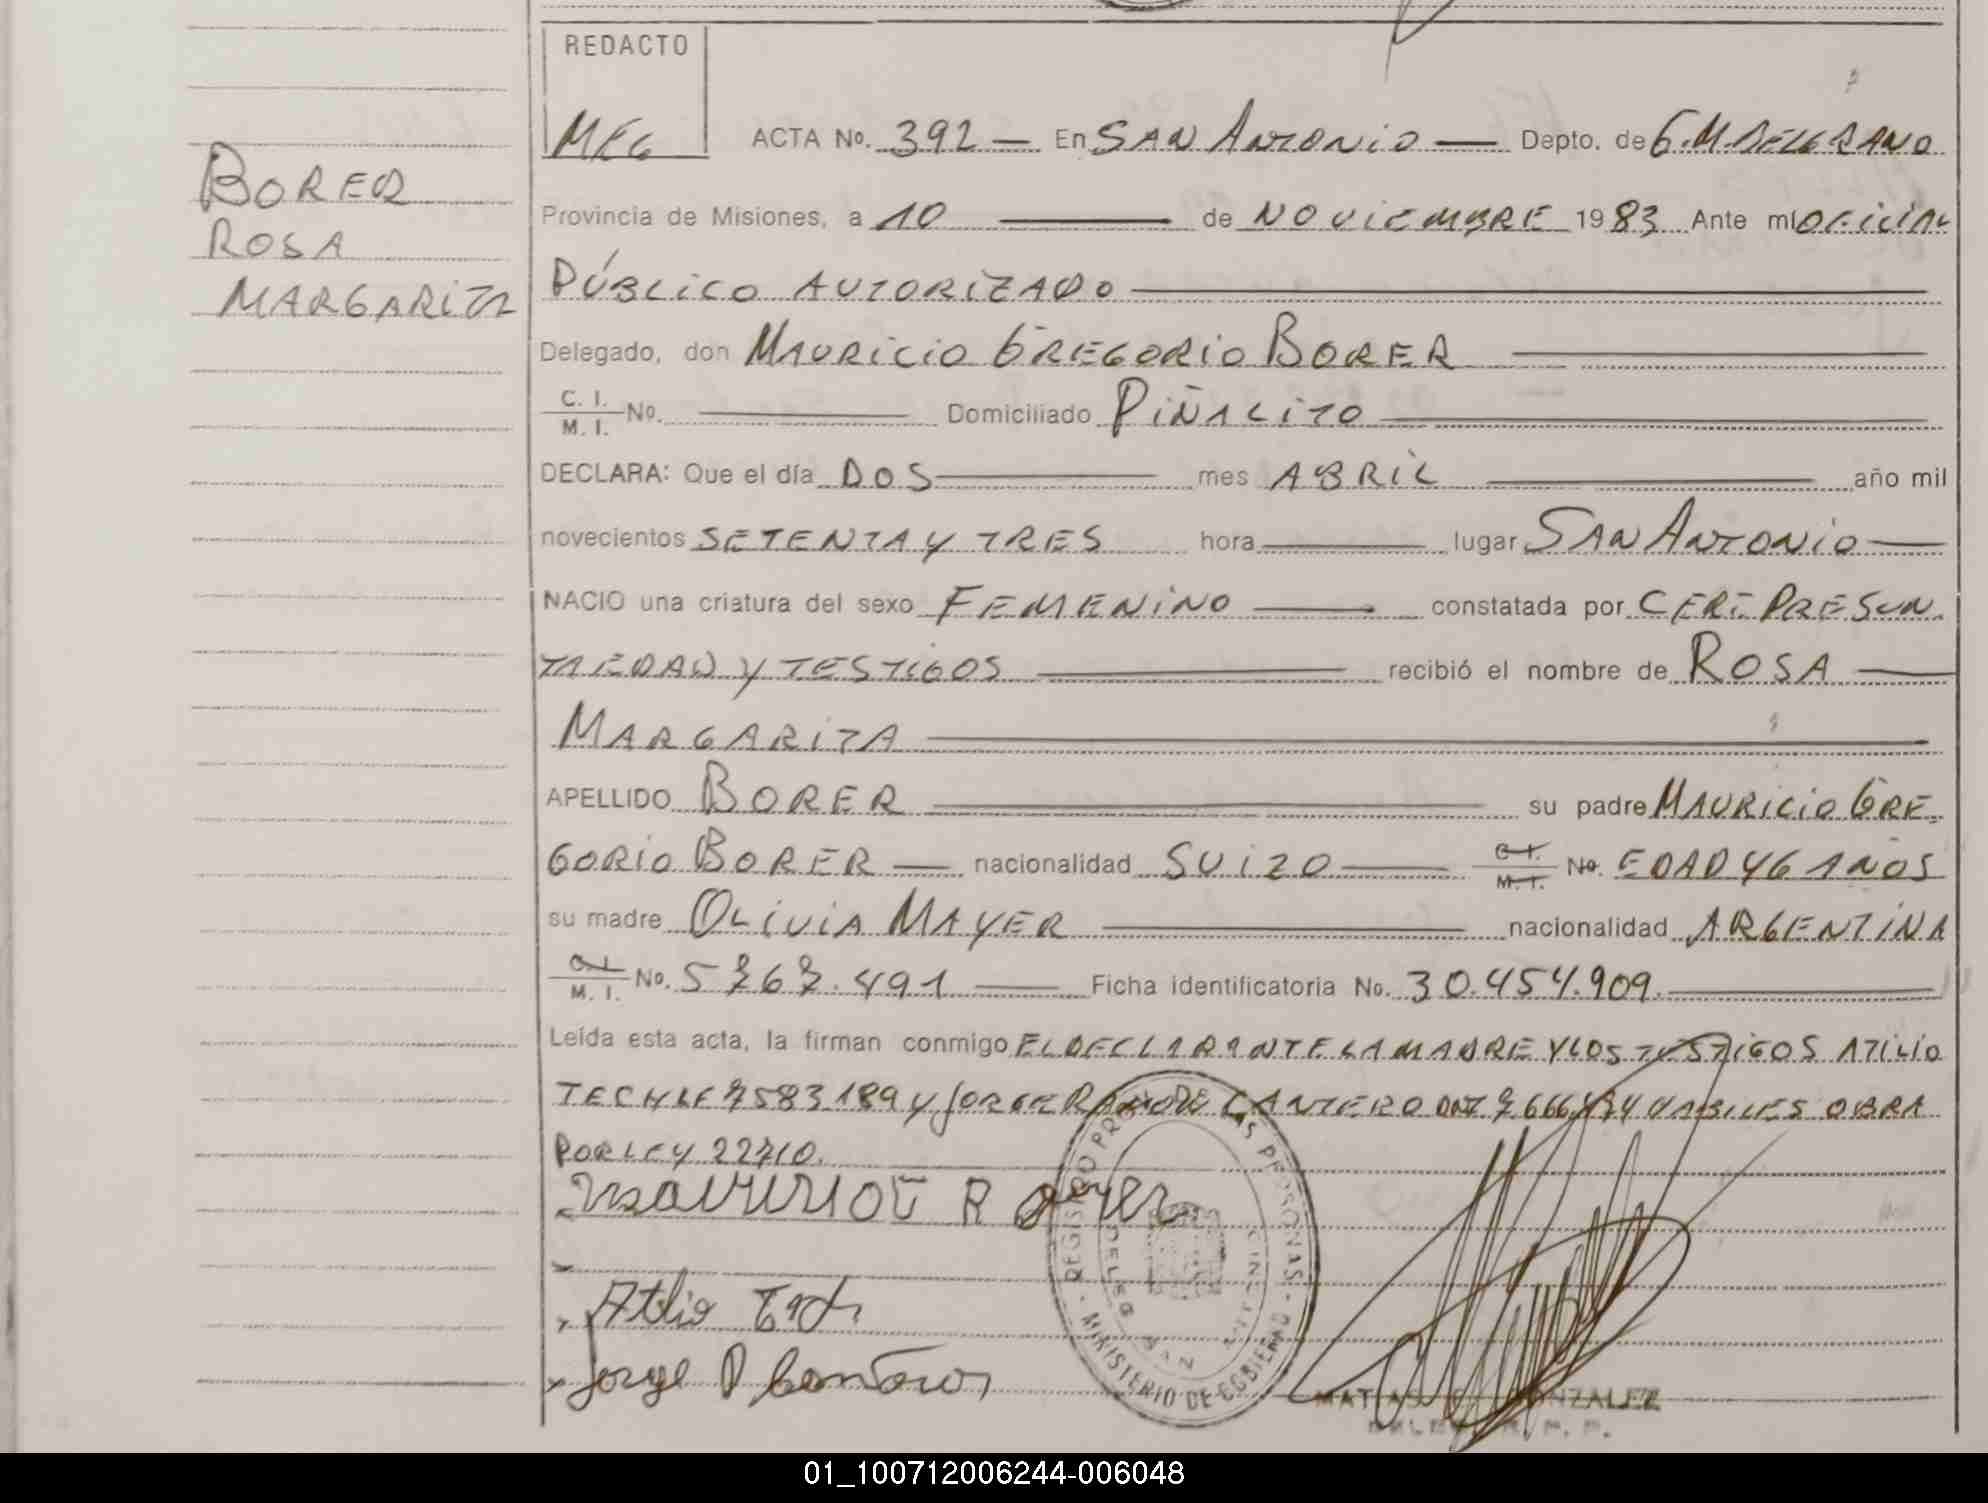 REDACTO
MEG
ACTA No. 392 — En SAN ANTONIO — Depto. de G.M.BELGRANO
BORER
ROSA
MARGARITA
Provincia de Misiones, a 10 — de NOVIEMBRE 1983 Ante mí OFICIAL
PÚBLICO AUTORIZADO —
Delegado, don MAURICIO GREGORIO BORER —
C. I.
M. I. No. — Domiciliado PIÑALITO —
DECLARA: Que el día DOS — mes ABRIL — año mil
novecientos SETENTA Y TRES hora — lugar SAN ANTONIO —
NACIO una criatura del sexo FEMENINO — constatada por CERT. PRESUN
TA EDAD Y TESTIGOS — recibió el nombre de ROSA —
MARGARITA —
APELLIDO BORER — su padre MAURICIO GRE-
GORIO BORER — nacionalidad SUIZO — C. I. M. I. No. EDAD 46 AÑOS
su madre OLIVIA MAYER — nacionalidad ARGENTINA
C. I.
M. I. No. 5767.491 — Ficha identificatoria No. 30.454.909. —
Leída esta acta, la firman conmigo EL DECLARANTE LA MADRE Y LOS TESTIGOS ATILIO
TECH LE 7583189 Y JORGE RAMON CANTERO DNI HABILES OBRA
POR LEY 22710.
Atilio Tech
Jorge R Canteros
REGISTRO PROV. DE LAS PERSONAS
MINISTERIO DE GOBIERNO
DELEG. SAN ANTONIO
MATIAS GONZALEZ
01_100712006244-006048